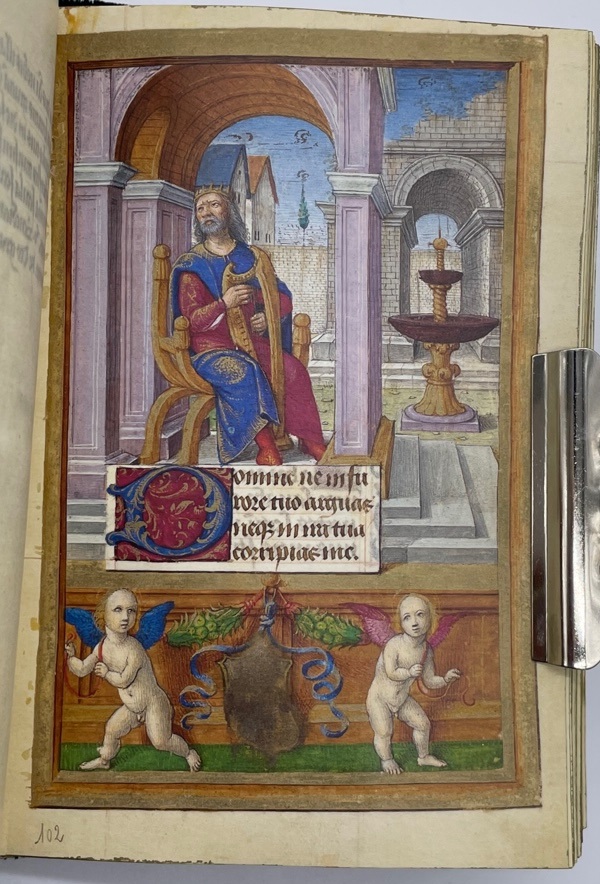 Domine ne in fu
rore tuo arguas
neqȝ in ira tua
corripias me.
102